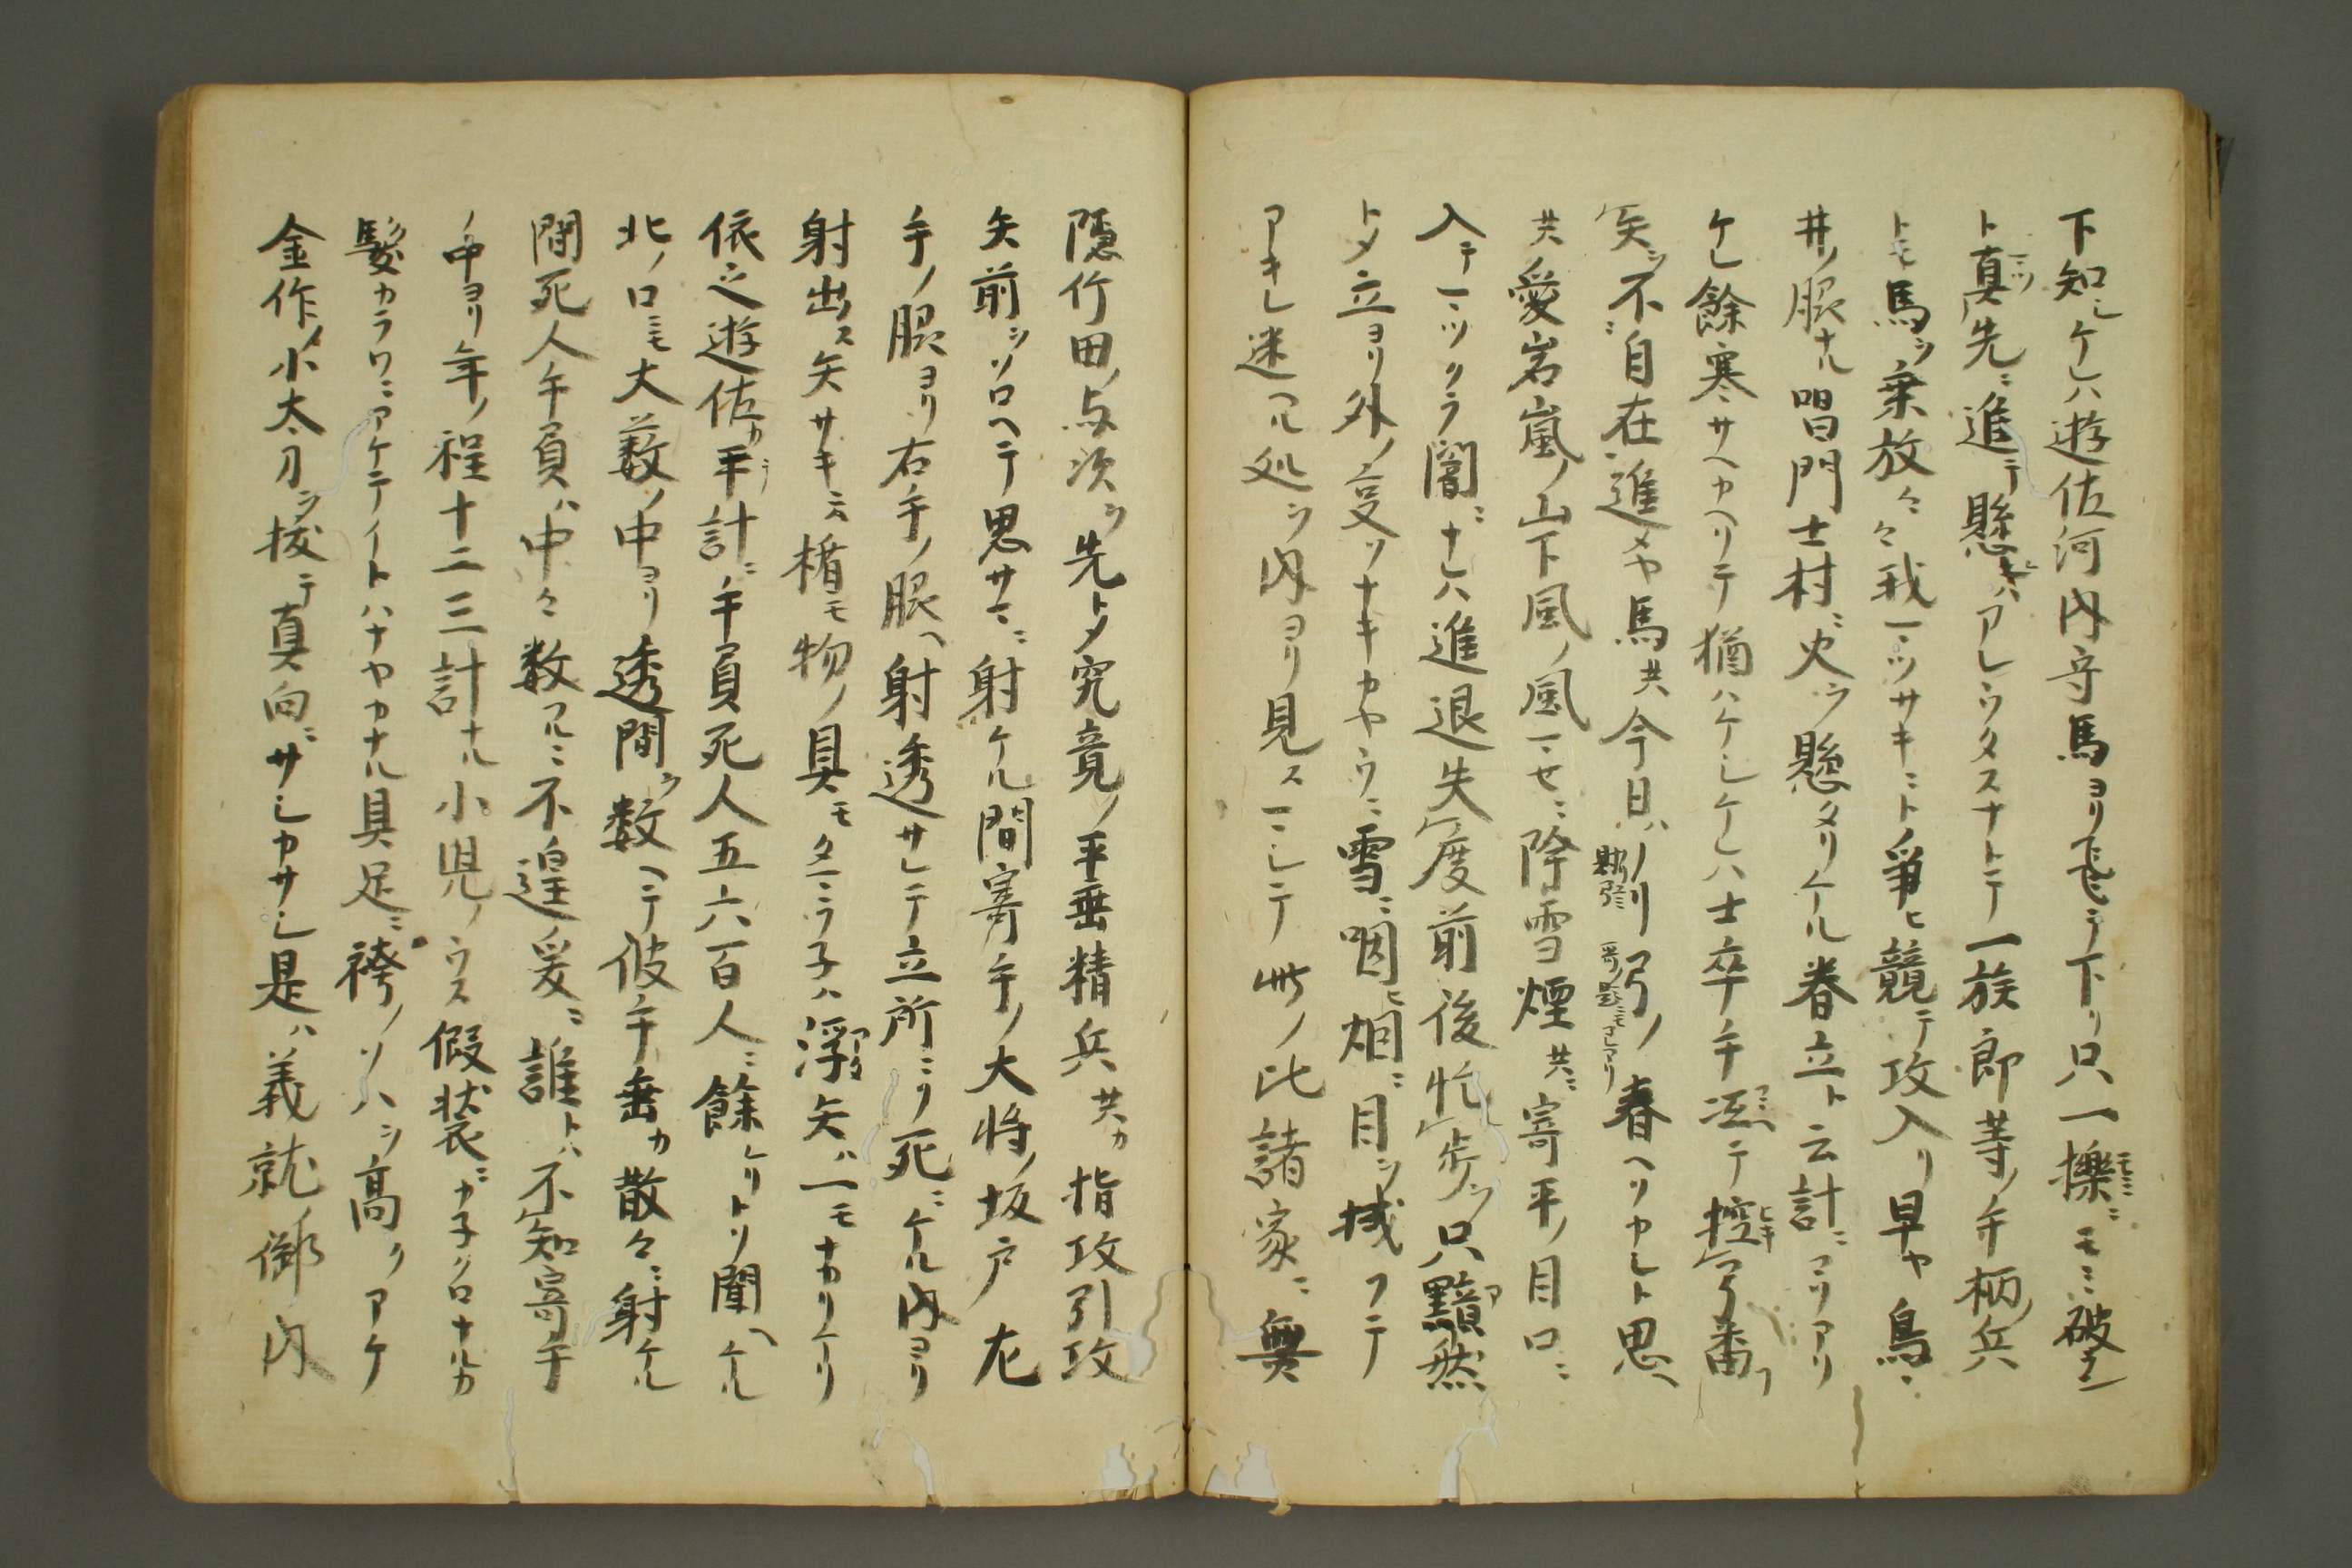 下知シケレハ遊佐河内守馬ヨリ飛テ下リ只一擽ニモミ破ラン
ト真先ニ進テ懸レハアレウタスナトテ一族郎等ノ手柄ノ兵
トモ馬ヲ乗放々々我マツサキニト争ヒ競テ攻入リ早ヤ鳥
井ノ脇ナル唱門士村ニ火ヲ懸タリケル春立ト云計ニマリアリ
ケレ餘寒サヘカヘリテ猶ハケシケレハ士卒ノ手冱テ控弓番フ
矢ヲ不ニ自在進メヤ馬共今日ハノリ弓ノ春ヘリヤレト思ヘ
共愛岩嵐ノ山下風ノ風マセニ降雪煙共ニ寄手ノ目口ニ
入テマツクラ闇ニナレハ進退失度前後忙歩ヲ只黯然
トメ立ヨリ外ノ支ソナキカヤウニ雪ニ咽ヒ烟ニ目ヲ塞フテ
アキレ迷ヘル処ヲ内ヨリ見スマシテ此ノ比諸家ニ無
隠竹田ノ与次ヲ先トメ究竟ノ手垂精兵共カ指攻引攻
矢前ヲソロヘテ思サマニ射ケル間寄手ノ大将ノ坂戸左
手ノ脇ヨリ右手ノ脇ヘ射透サレテ立所ニソ死ニケル内ヨリ
射出ス矢サキニハ楯モ物ノ具モタマラ子ハ浮矢ハ一モナカリケリ
依之遊佐カ手計ニ手負死人五六百人ニ餘ケリトソ聞ヘケル
北ノ口ニモ大薮ノ中ヨリ透間ヲ数ヘテ彼手垂カ散々ニ射ケル
間死人手負ハ中々数フルニ不遑爰ニ誰トハ不知寄手
ノ中ヨリ年ノ程十二三計ナル小児ノウス假装ニカ子クロナルカ
髪カラワニアケテイトハナヤカナル具足ニ袴ノソハヲ高クアケ
金作ノ小太刀ヲ抜テ真向ニサシカサシ是ハ義就ノ御内
マツ
モミ
コヽヘ
ヒキ
ア
アタ